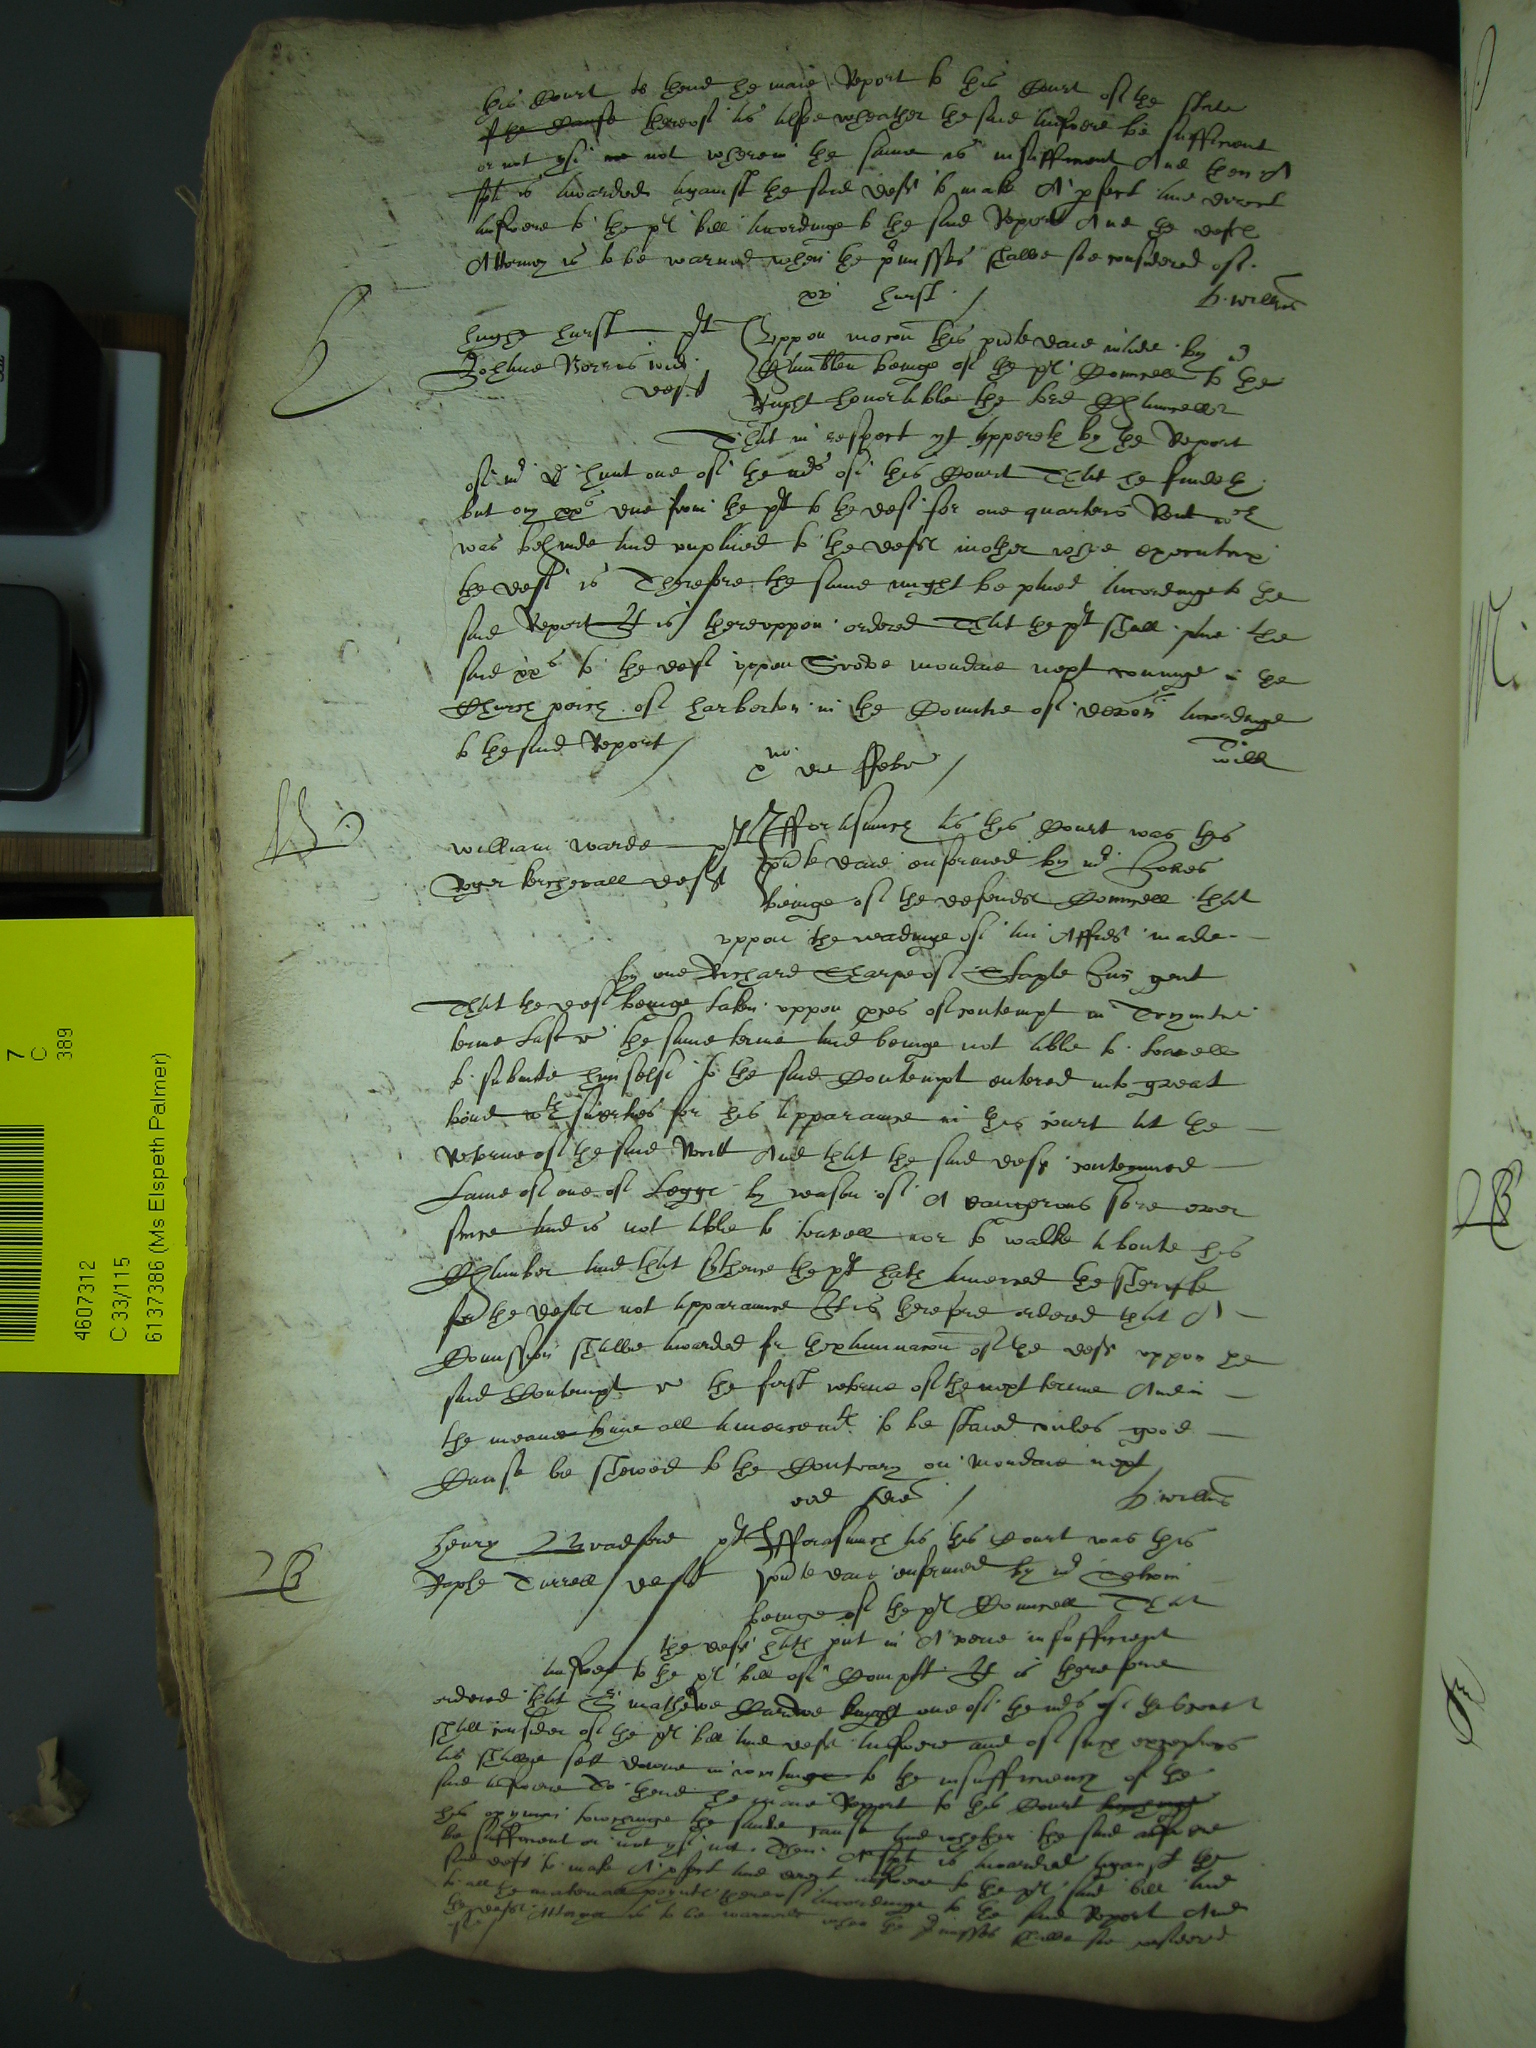 this Court to thend he maie Report to this Court of the state
of the Cause thereof as also wheather the said aunswere be sufficient
or not yf not wherein the same is insufficient And then A
spa is awarded against the said deft to make A pfect and direct
aunswere to the plt bill accordinge to the said Report And the defts
Attorney is to be warned when the pmisses shalbe soe considered of.
hurst /
H: Willms
hughe hurst plt
Johane Norris wid deft
Uppon mocon this pnte daie made by mr
beinge of the plt Councell to the
Right honorable the lord Chauncellor
That in respect yt appereth by the Report
of mr D hunt one of the mrs of this Court That he findeth
but on xxs due from the plt to the deft for one quarters Rent wch
was behinde and unpaied to the defts mother whose executrix
the deft is Therefore the same might be paied accordinge to the
said Report It is thereuppon ordered That the plt shall paie the
said xxs to the deft uppon mondaie next cominge in the
Church porch of harberton in the Countie of devon accordinge
to the said Report /
Will
xmo die Febr /
William Warde plt
Roger kerchevall deft
Fforasmuch as this Court was this
pnte daie enformed by mr
beinge of the defends Councell that
uppon the readinge of an Affidt made
by one Richard Sharpe of Staple Inn gent
That the deft beinge taken uppon pces of contempt in Trynitie
terme Last the same terme and beinge not able to travell
to submitt himselfe to the said Contempt entered into great
bond wth suerties for his apparance in this court at the
Retorne of the said Writt And that the said deft contynued
Lame of one of Legge by reason of A dangerous sore ever
since and is not able to travell nor to walke aboute his
Chamber and that sythence the plt hath amerced the Sheriffe
for the defts not apparance It is therefore ordered that A
Comission shalbe awarded for thexaminacon of the deft uppon the
said Contempt the first retorne of the next terme And in
the meane tyme all amerceamts to be staied unles good
Cause be shewed to the Contrary on Mondaie next
eod die /
H: Willms
Henry Bradford plt
Raphe Turrell deft
Fforasmuch as this Court was this
pnte daie enformed by mr
beinge of the plt Councell That
the deft hath put in A verie insufficient
aunswere to the plt bill of Complt It is therefore
ordered that Sr mathewe Carewe knight one of the mrs of this Court
shall consider of the plt bill and deft aunswere and of such exceptions
as shalbe sett downe in writinge to the insufficiency of the
said aunswere To thend he maie Report to this Court
his opynion towchinge the same cause and whether the said aunswere
be sufficient or not yf not. Then A spa is awarded against the
said deft to make A pfect and direct aunswere to the plt said bill and
to all the materiall poyntes thereof accordinge to the said Report And
the defts Attorney is to be warned when the pmisses shalbe soe considered
of /
7
C
389
4607312
C 33/115
6137386 (Ms Elspeth Palmer)